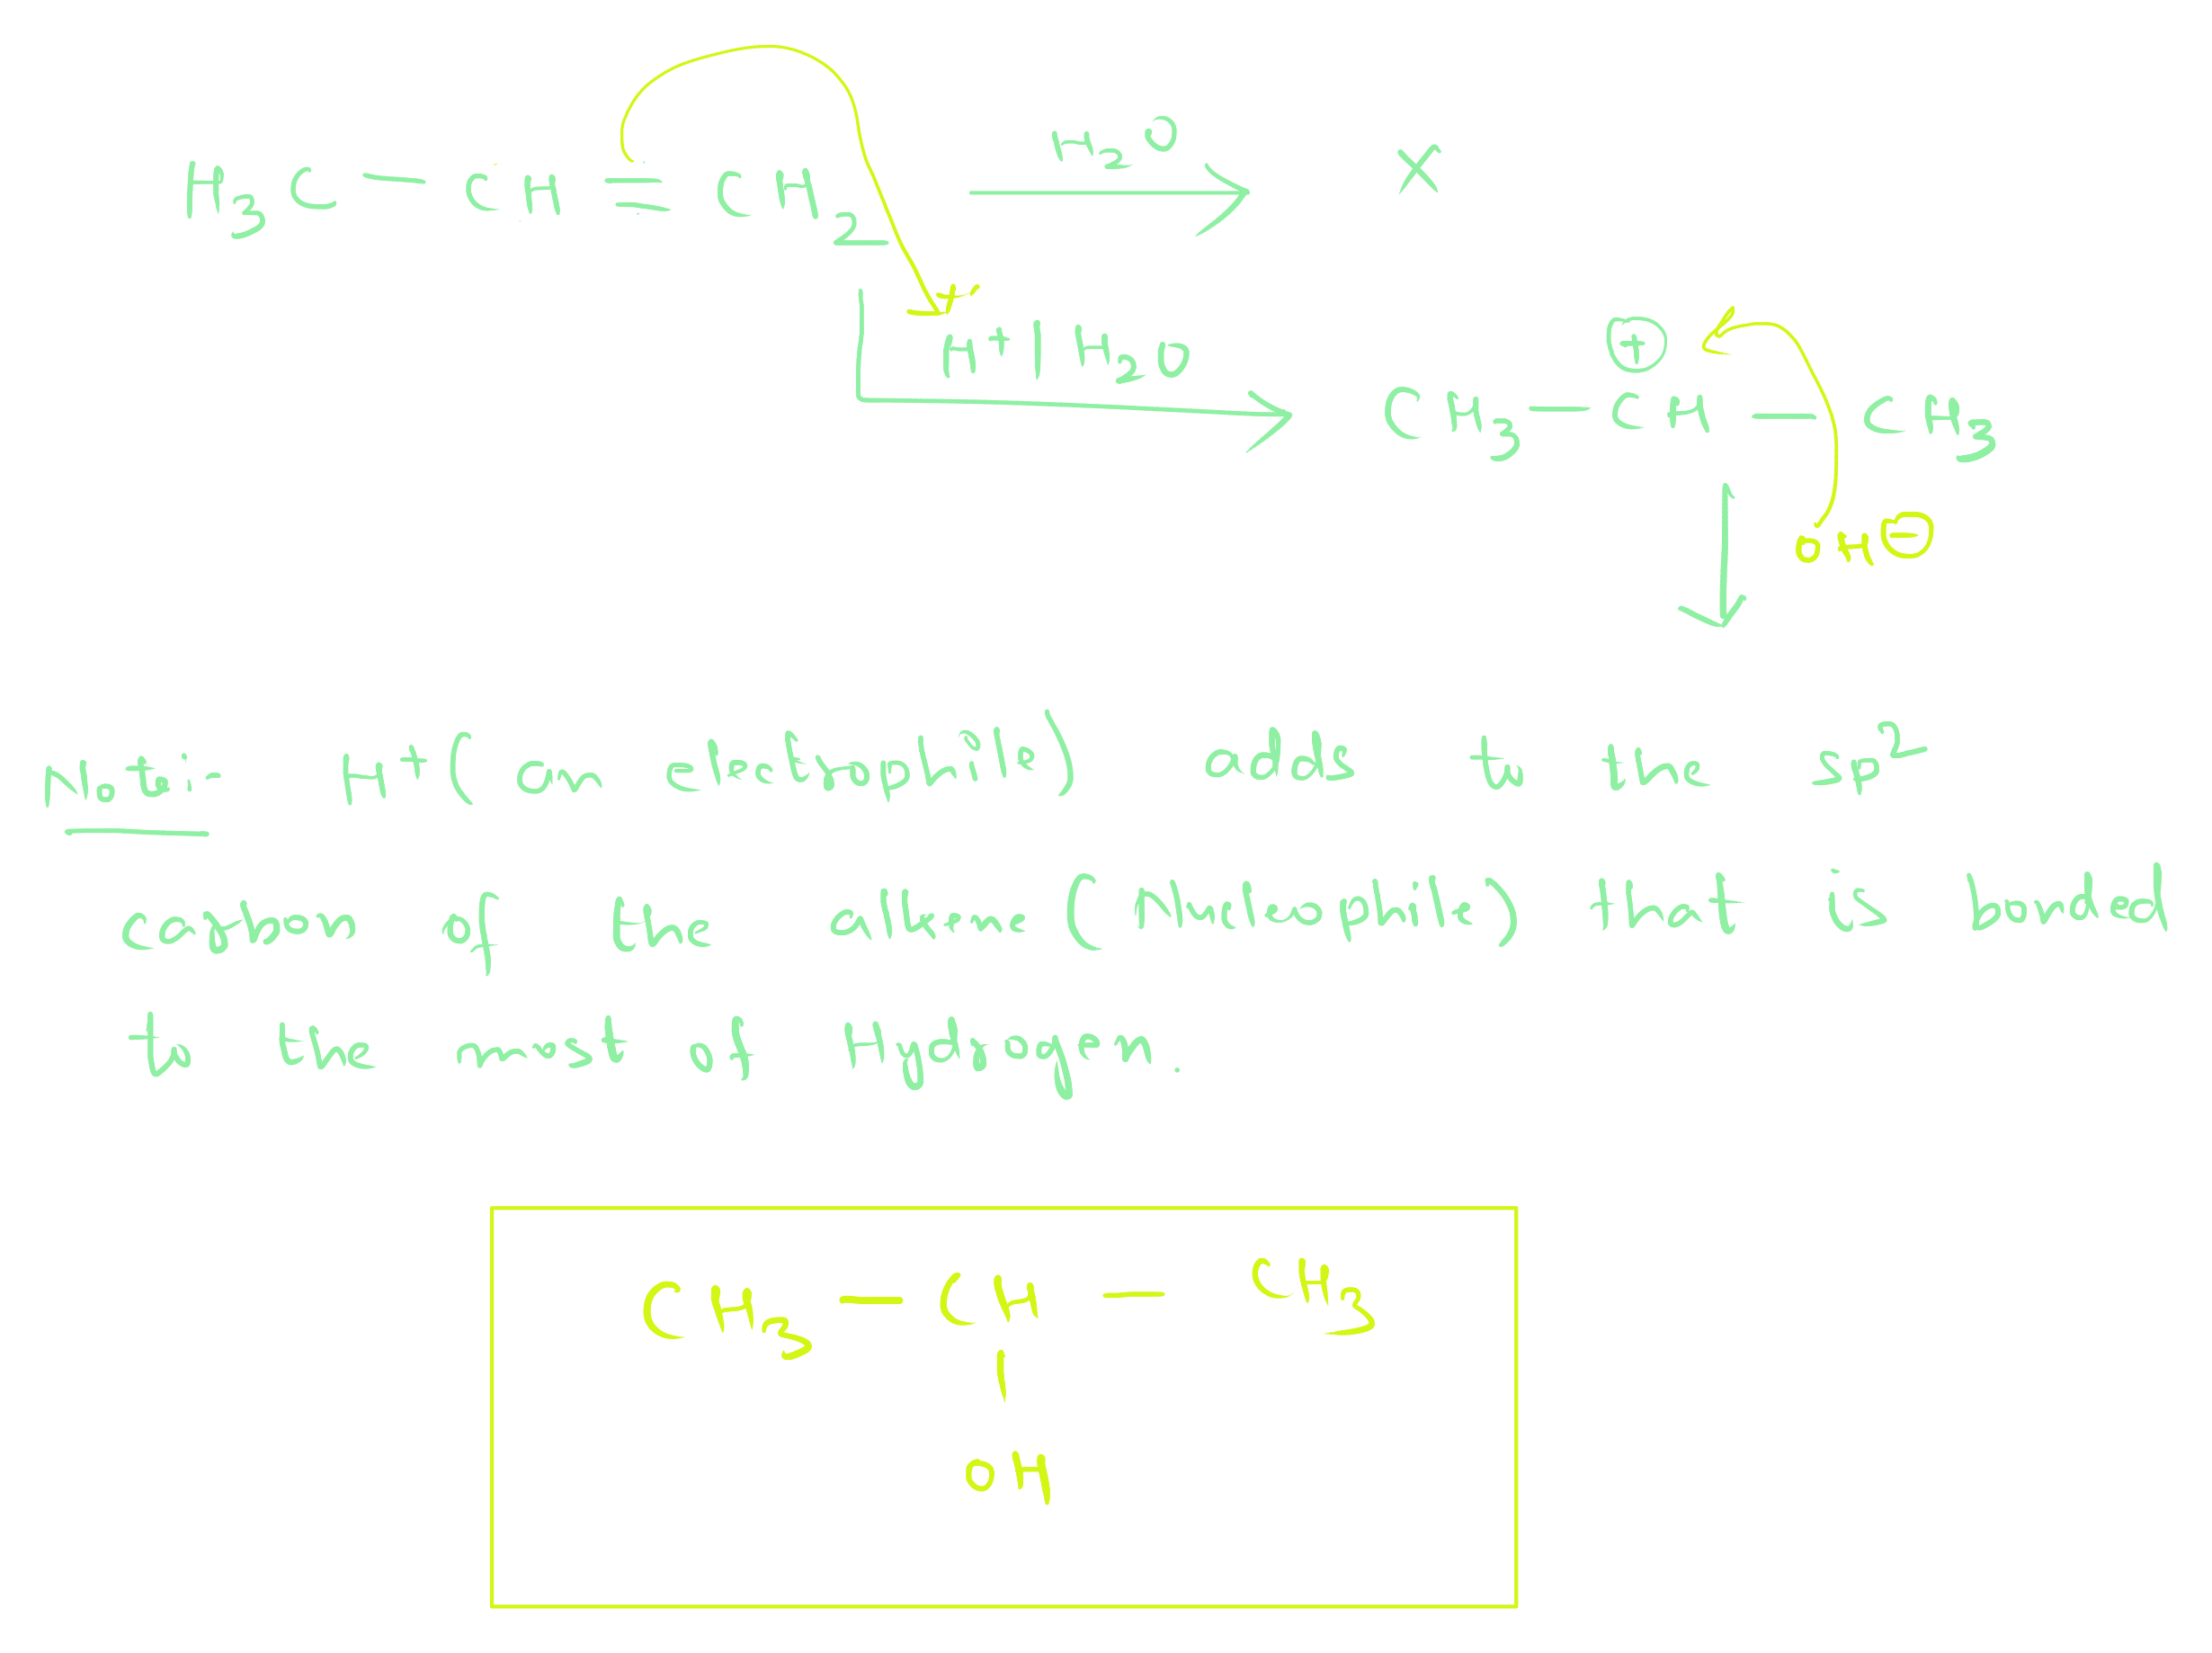 H₃C — CH = CH₂ H₂O X
H⁺ | H₂O
CH₃ — CH — CH₃
⊕
OH⊖
Note:- H⁺ (an electrophile) adds to the sp²
carbon of the alkene (Nucleophile) that is bonded
to the most of Hydrogen.
CH₃ — CH — CH₃
|
OH